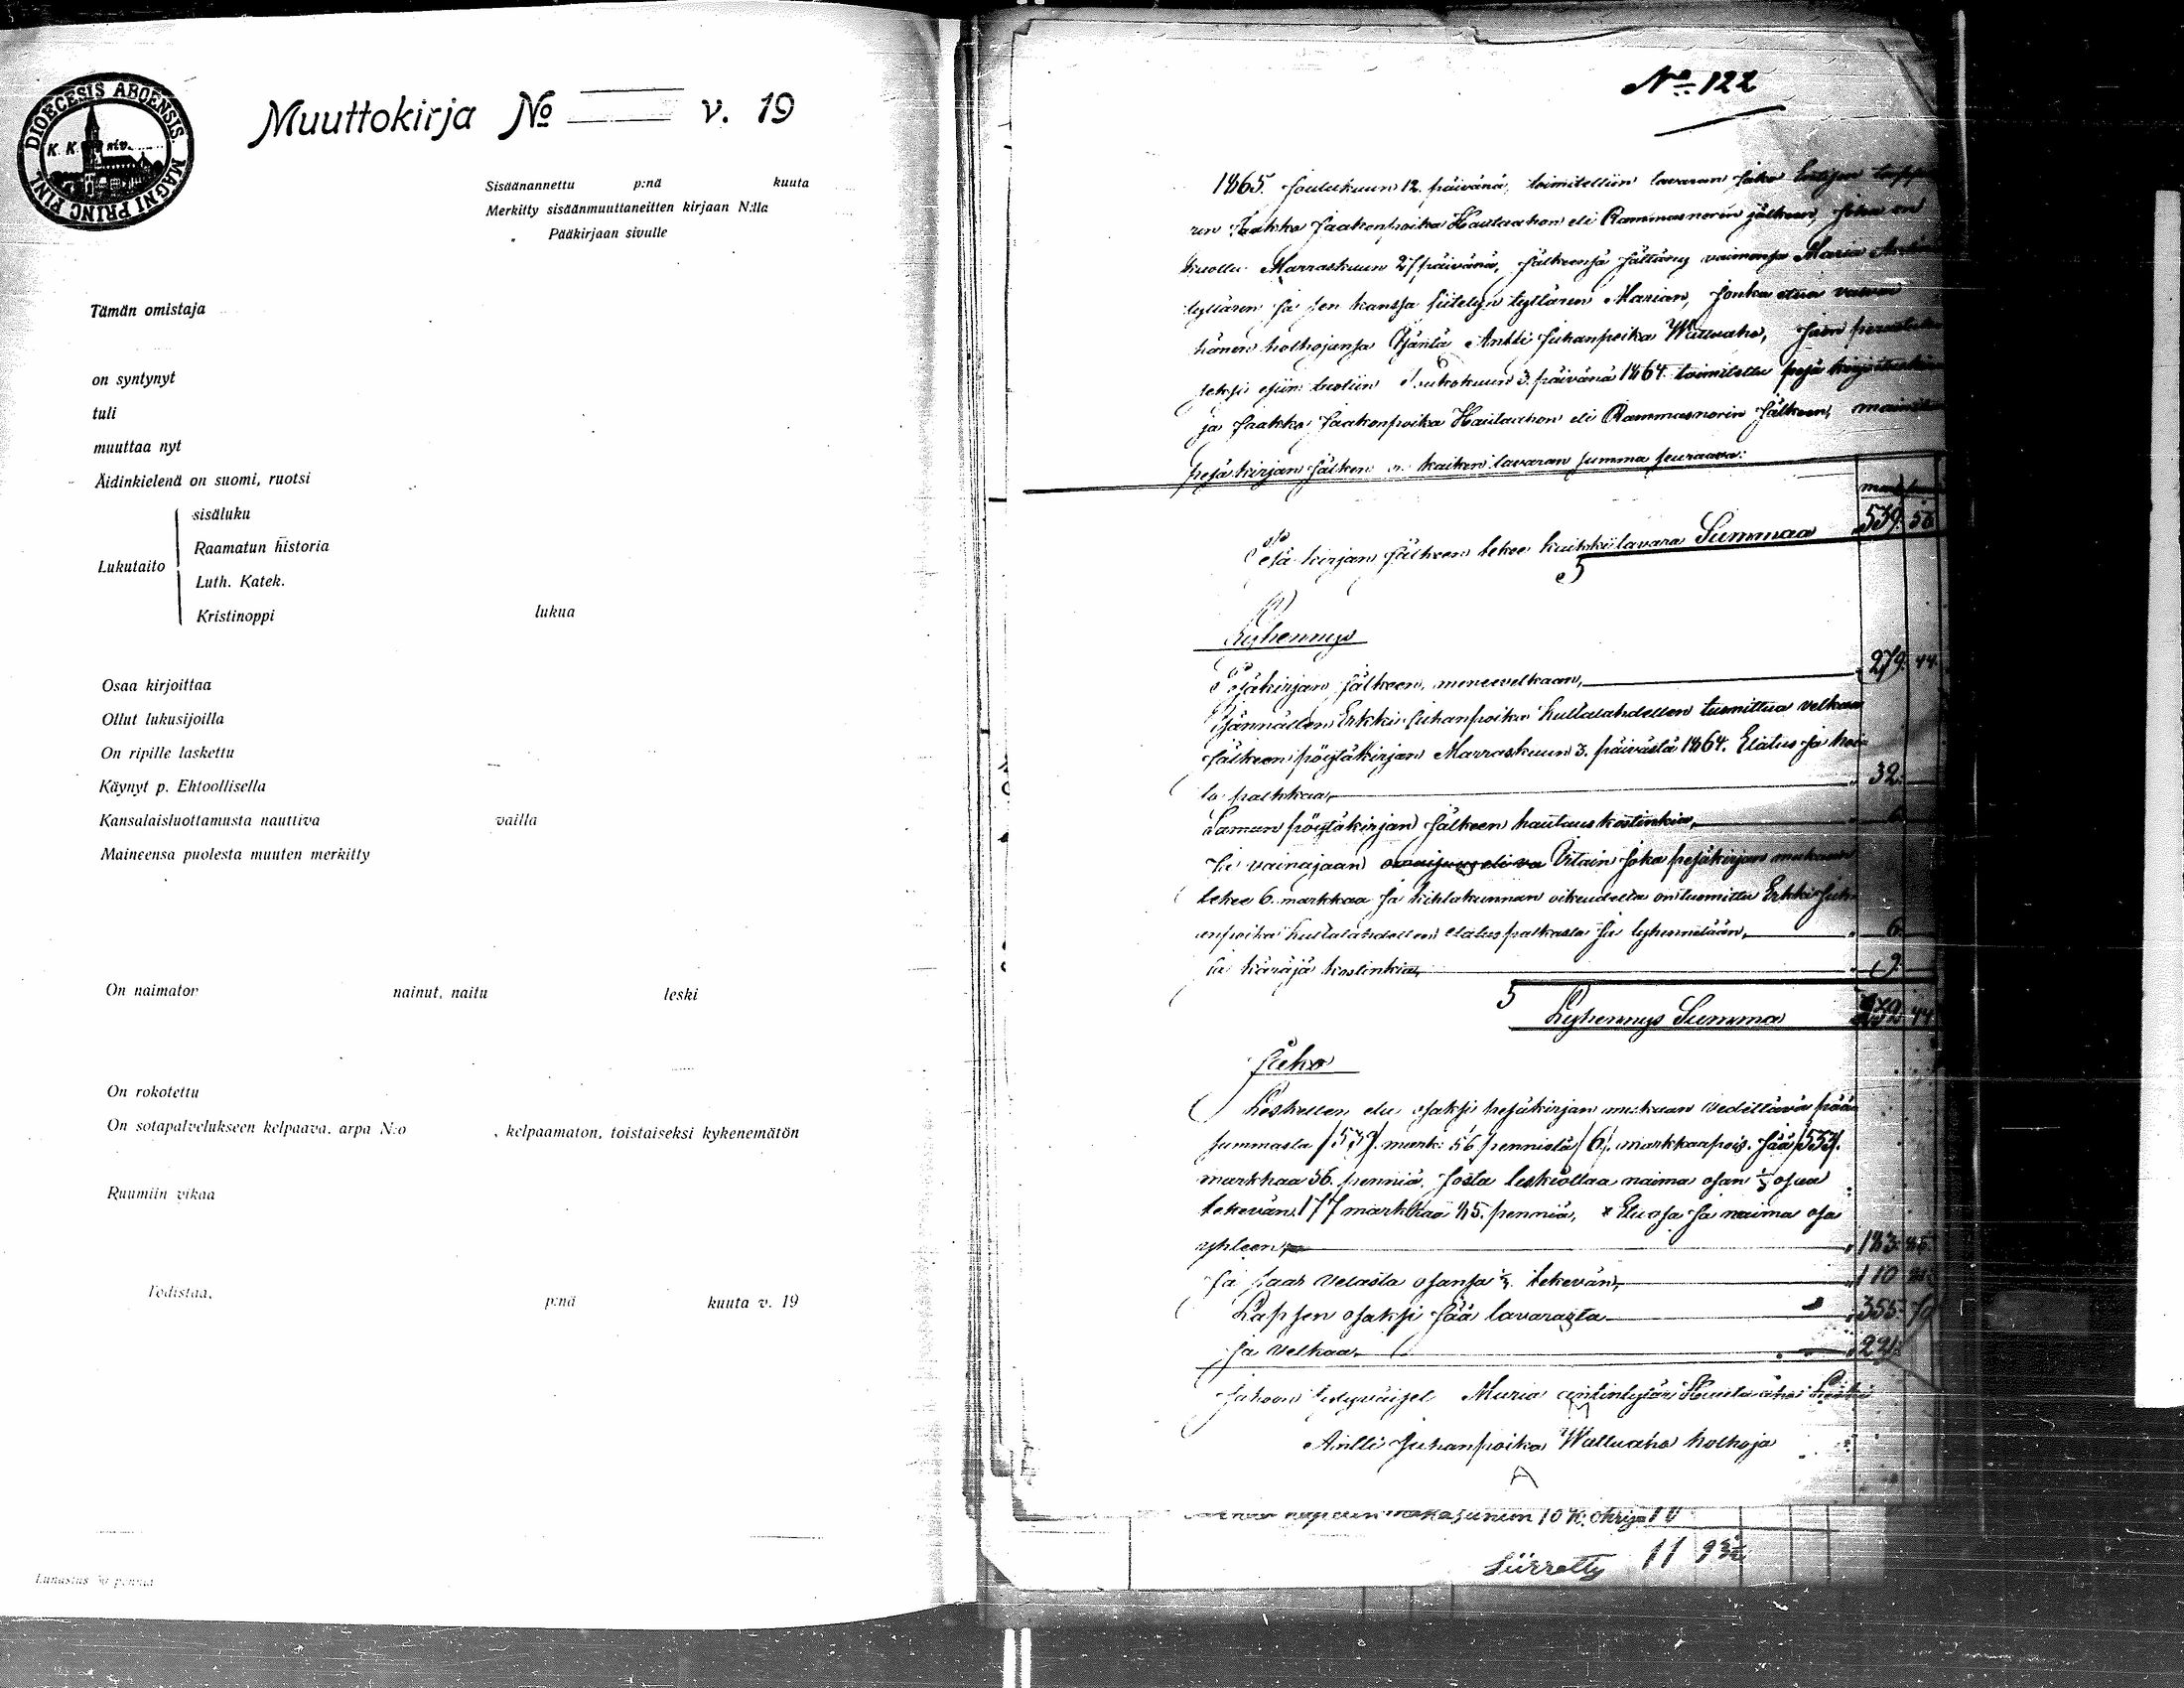 DIOECESIS ABOENSIS MAGNI PRINC FINL
K. K. niv.
Muuttokirja No v. 19
Sisäänannettu p:nä kuuta
Merkitty sisäänmuuttaneitten kirjaan N:lla
Pääkirjaan sivulle
Tämän omistaja
on syntynyt
tuli
muuttaa nyt
Äidinkielenä on suomi, ruotsi
Lukutaito
sisäluku
Raamatun historia
Luth. Katek.
Kristinoppi lukua
Osaa kirjoittaa
Ollut lukusijoilla
On ripille laskettu
Käynyt p. Ehtoollisella
Kansalaisluottamusta nauttiva vailla
Maineensa puolesta muuten merkitty
On naimaton nainut, naitu leski
On rokotettu
On sotapalvelukseen kelpaava, arpa N:o , kelpaamaton, toistaiseksi kykenemätön
Ruumiin vikaa
Todistaa,
p:nä kuuta v. 19
Lunastus 50 penniä
No 122
1865 Joulukuun 12. päivänä, toimitettiin tavaran jako
Jaakko Jaakonpoika Haulaahon eli Rammasnorin jälkeen, joka on
kuollu Marraskuun 27 päivänä, jälkeensä jättäny vaimonsa Maria
tyttären ja sen kanssa siitetyn tyttären Marian, jonka etua valvoo
hänen holhojansa Isäntä Antti Juhanpoika Walluaho, jaon
seksi esiin tuotiin Toukokuun 3. päivänä 1864 toimitettu pesä
ja Jaakko Jaakonpoika Haulaahon eli Rammasnorin jälkeen,
pesäkirjan jälkeen on kaiken tavaran summa seuraava:
Pesäkirjan jälkeen tekee kaikki tavara Summaa 539 56
Lyhennys
Pesäkirjan jälkeen, menee velkaan, 279 44
Isännällen Erkki Juhanpoika Kultalahdellen tuomittua velkaa
jälkeen pöytäkirjan Marraskuun 3. päivästä 1864. Elatus ja hoi
to palkkaa, 32.
Saman pöytäkirjan jälkeen hautaus kostinkia, 6
vainajaan Vitain joka pesäkirjan mukaan
tekee 6. markkaa ja kihlakunnan oikeudelta on tuomittu Erkki Juh
anpoika Kultalahdellen elatus palkasta ja lyhennetään, 6
ja käräjä kostinkia, 9
Lyhennys Summa 44
Jako
Leskellen etu osaksi pesäkirjan mukaan vedettävä pää
summasta /539/. mark: 56 pennistä /6/. markkaa pois. Jää /533/.
markkaa 56. penniä. Josta leski ottaa naima osan 1/3 osaa
tekevän 177 markkaa 85. penniä, Etu osa ja naima osa
yhteen, 183. 85
ja saar velasta osansa 1/3 tekevän, 110
Lapsen osaksi jää tavarasta 355.
ja velkaa 221.
Jakoon tydyväiset Maria antintytär Leski
Antti Juhanpoika Walluaho holhoja
10 K:
Siirretty 11 9